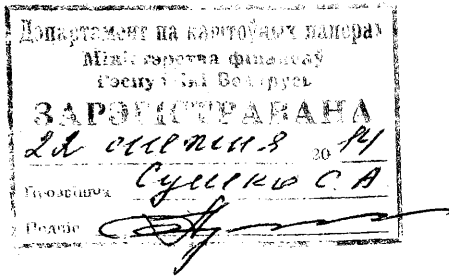 Дэпартамент па каштоўных паперах
Міністэрства фінансаў
Рэспублікі Беларусь
ЗАРЭГІСТРАВАНА
22 снежня 20 14
Прозвішча Сушко С А
Подпіс